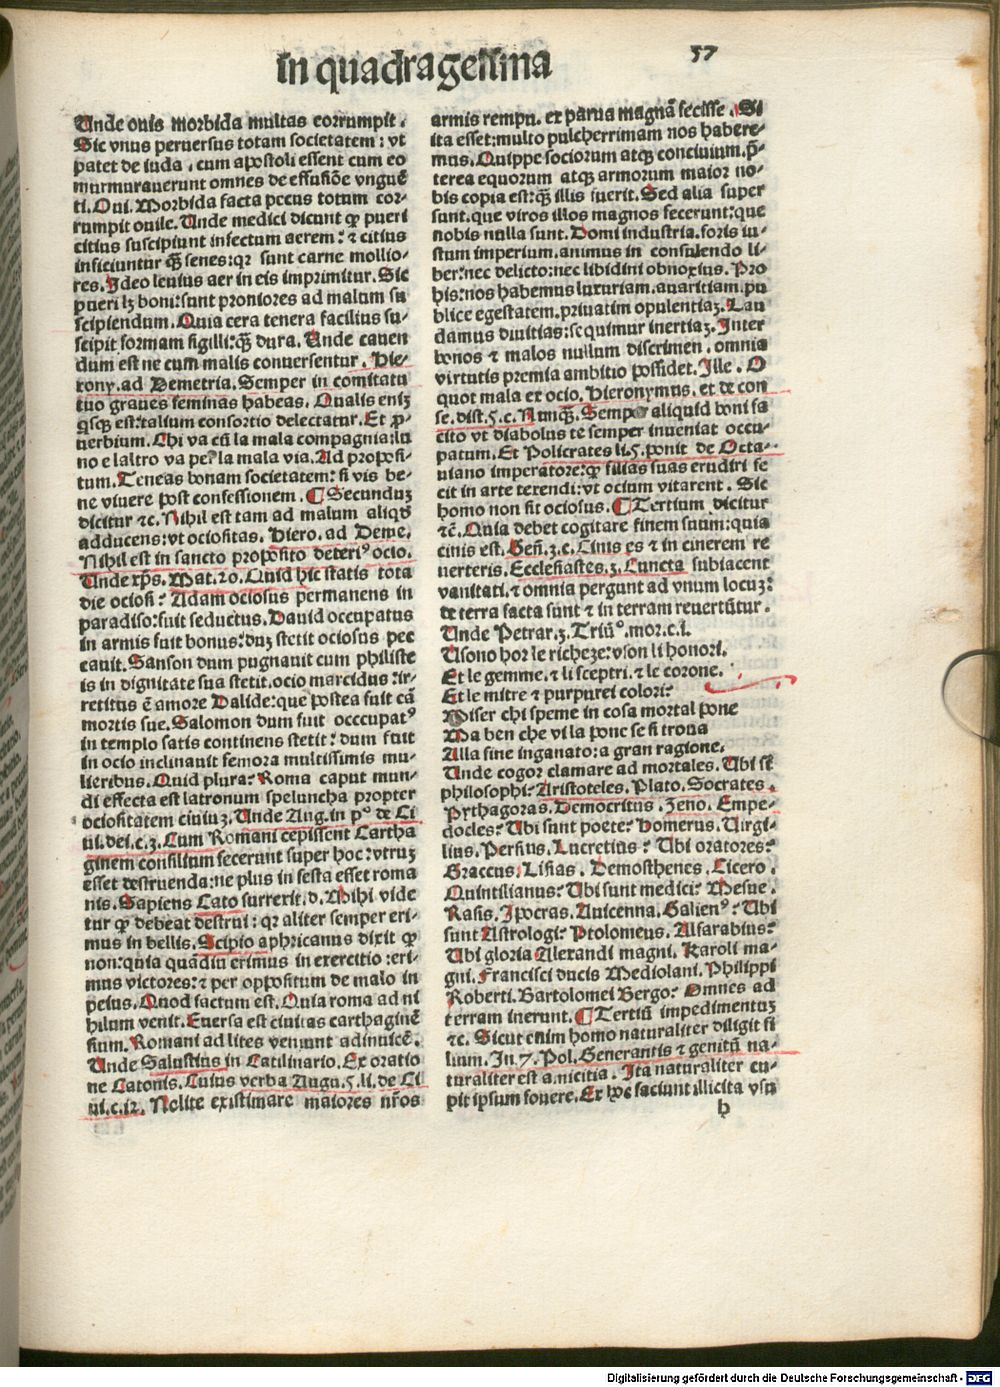 In quadragesima
57
Unde ouis morbida multas corrumpit.
Sic vnus peruersus totam societatem: vt
patet de iuda, cum apostoli essent cum eo
murmurauerunt omnes de effusiõe vnguẽ
ti. Oui. Morbida facta pecus totum cor-
rumpit ouile. Unde medici dicunt qꝙ pueri
citius suscipiunt infectum aerem: ⁊ citius
inficiuntur qꝫ̃ senes: qꝛ sunt carne mollio-
res. Ideo leuius aer in eis imprimitur. Sic
pueri lꝫ boni: sunt proniores ad malum su
scipiendum. Quia cera tenera facilius su-
scipit formam sigilli: qꝫ̃ dura. Unde cauen
dum est ne cum malis conuersentur. Hie-
rony. ad Demetria. Semper in comitatu
tuo graues feminas habeas. Qualis eniꝫ
qsqꝫ est: talium consortio delectatur. Et p̄-
uerbium. Chi va cũ la mala compagnia: lu
no e laltro va per la mala via. Ad proposi-
tum. Teneas bonam societatem: si vis be-
ne viuere post confessionem. ¶ Secunduꝫ
dicitur ⁊c. Nihil est tam ad malum aliqď
adducens: vt ociositas. Hiero. ad Deme.
Nihil est in sancto proposito deteriꝰ ocio.
Unde xp̄s. Mat. 20. Quid hic statis tota
die ociosi? Adam ociosus permanens in
paradiso: fuit seductus. Dauid occupatus
in armis fuit bonus: duꝫ stetit ociosus pec
cauit. Sanson dum pugnauit cum philiste
is in dignitate sua stetit. ocio marcidus: ir-
retitus ẽ amore Dalide: que postea fuit cã
mortis sue. Salomon dum fuit occcupatꝰ
in templo satis continens stetit: dum fuit
in ocio inclinauit femora multissimis mu-
lieribus. Quid plura? Roma caput mun-
di effecta est latronum speluncha propter
ociositatem ciuiuꝫ. Unde Aug. in pº de Ci
ui. dei. c. 3. Cum Romani cepissent Cartha
ginem consilium fecerunt super hoc: vtruꝫ
esset destruenda: ne plus in festa esset roma
nis. Sapiens Cato surrexit. d. Mihi vide
tur qꝙ debeat destrui: qꝛ aliter semper eri-
mus in bellis. Scipio aphricanus dixit qꝙ
non: quia quãdiu erimus in exercitio: eri-
mus victores: ⁊ per oppositum de malo in
peius. Quod factum est. Quia roma ad ni
hilum venit. Euersa est ciuitas carthaginẽ
sium. Romani ad lites veniunt adinuicẽ.
Unde Salustius in Catilinario. Ex oratio
ne Catonis. Cuius verba Augu. 5. li. de Ci
ui. c. 12. Nolite existimare maiores nr̃os
armis rempu. ex parua magnã fecisse. Si
ita esset: multo pulcherrimam nos habere-
mus. Quippe sociorum atqꝫ conciuium. p̄-
terea equorum atqꝫ armorum maior no-
bis copia est: qꝫ̃ illis fuerit. Sed alia super
sunt. que viros illos magnos fecerunt: que
nobis nulla sunt. Domi industria. foris iu-
stum imperium. animus in consulendo li-
ber: nec delicto: nec libidini obnoxius. Pro
his: nos habemus luxuriam. auaritiam. pu
blice egestatem. priuatim opulentiaꝫ. Lau
damus diuitias: sequimur inertiaꝫ. Inter
bonos ⁊ malos nullum discrimen. omnia
virtutis premia ambitio possidet. Ille. O
quot mala ex ocio. Hieronymus. et de con
se. dist. 5. c. Nunqꝫ̃. Semper aliquid boni fa
cito vt diabolus te semper inueniat occu-
patum. Et Policrates li. 5. ponit de Octa-
uiano imperatore: qꝙ filias suas erudiri fe
cit in arte texendi: vt ocium vitarent. Sic
homo non sit ociosus. ¶ Tertium dicitur
⁊c̃. Quia debet cogitare finem suum: quia
cinis est. Geñ. 3. c. Cinis es ⁊ in cinerem re
uerteris. Ecclesiastes. 3. Cuncta subiacent
vanitati. ⁊ omnia pergunt ad vnum locuꝫ:
de terra facta sunt ⁊ in terram reuertũtur.
Unde Petrar. 3. Triũº. mor. c. i.
Usono hor le richeze: vson li honori.
Et le gemme. ⁊ li sceptri. ⁊ le corone.
Et le mitre ⁊ purpurei colori?
Miser chi speme in cosa mortal pone
Ma ben che vi la pone se si troua
Alla fine inganato: a gran ragione.
Unde cogor clamare ad mortales. Ubi st̃
philosophi? Aristoteles. Plato. Socrates.
Pythagoras. Democritus. Zeno. Empe-
docles? Ubi sunt poete? Homerus. Uirgi-
lius. Persius. Lucretius? Ubi oratores?
Graccus. Lisias. Demosthenes. Cicero.
Quintilianus? Ubi sunt medici? Mesue.
Rasis. Ipocras. Auicenna. Galienꝰ? Ubi
sunt Astrologi? Ptolomeus. Alfarabius?
Ubi gloria Alexandi magni. Karoli ma-
gni. Francisci ducis Mediolani. Philippi
Roberti. Bartolomei Bergo? Omnes ad
terram inerunt. ¶ Tertiũ impedimentuꝫ
⁊c. Sicut enim homo naturaliter diligit fi
lium. In. 7. Pol. Generantis ⁊ genitũ na-
turaliter est amicitia. Ita naturaliter cu-
pit ipsum fouere. Ex hoc faciunt illicita vsu
h
Digitalisierung gefördert durch die Deutsche Forschungsgemeinschaft - DFG